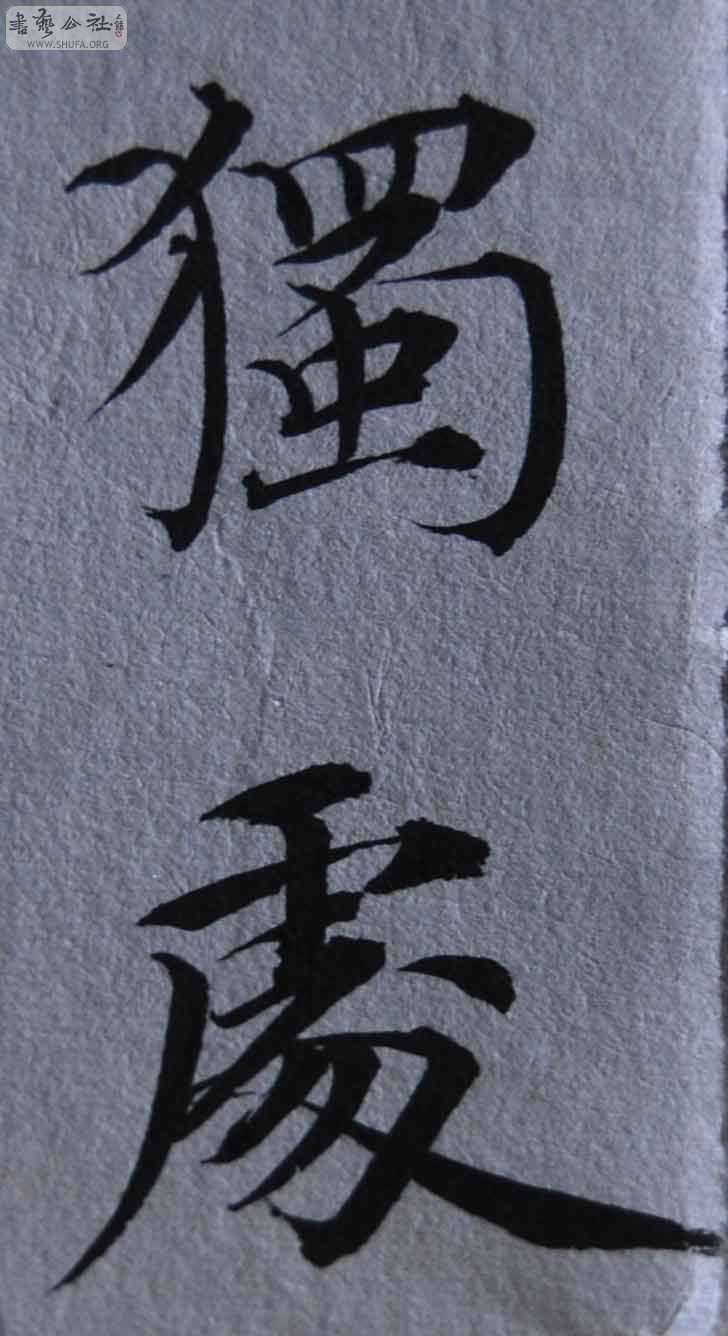 書藝公社
WWW.SHUFA.ORG
獨處